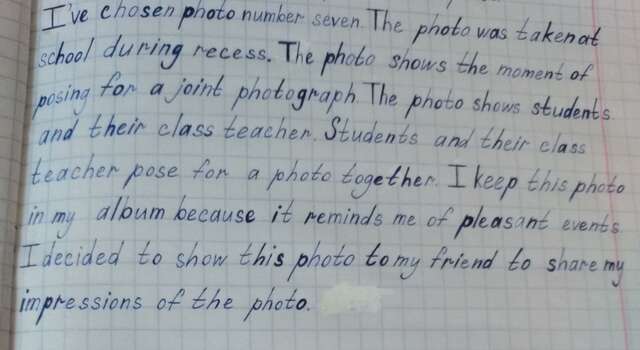 I've chosen photo number seven. The photo was taken at
school during recess. The photo shows the moment of
posing for a joint photograph. The photo shows students
and their class teacher. Students and their class
teacher pose for a photo together. I keep this photo
in my album because it reminds me of pleasant events.
I decided to show this photo to my friend to share my
impressions of the photo.